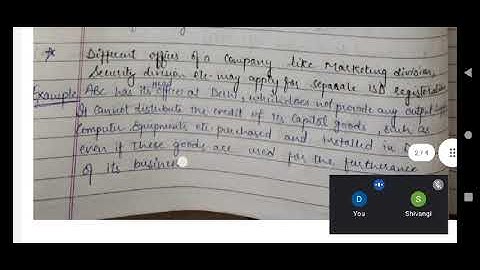 * Different offices of a Company like Marketing division,
Security division etc may apply for separate ISD registration
Example ABC has its office at Delhi, which does not provide any output
It cannot distribute the credit of its Capital goods, such as
Computer Equipments etc purchased and installed in
even if these goods are used for the furtherance
of its business
2 / 4
D
S
You
Shivangi